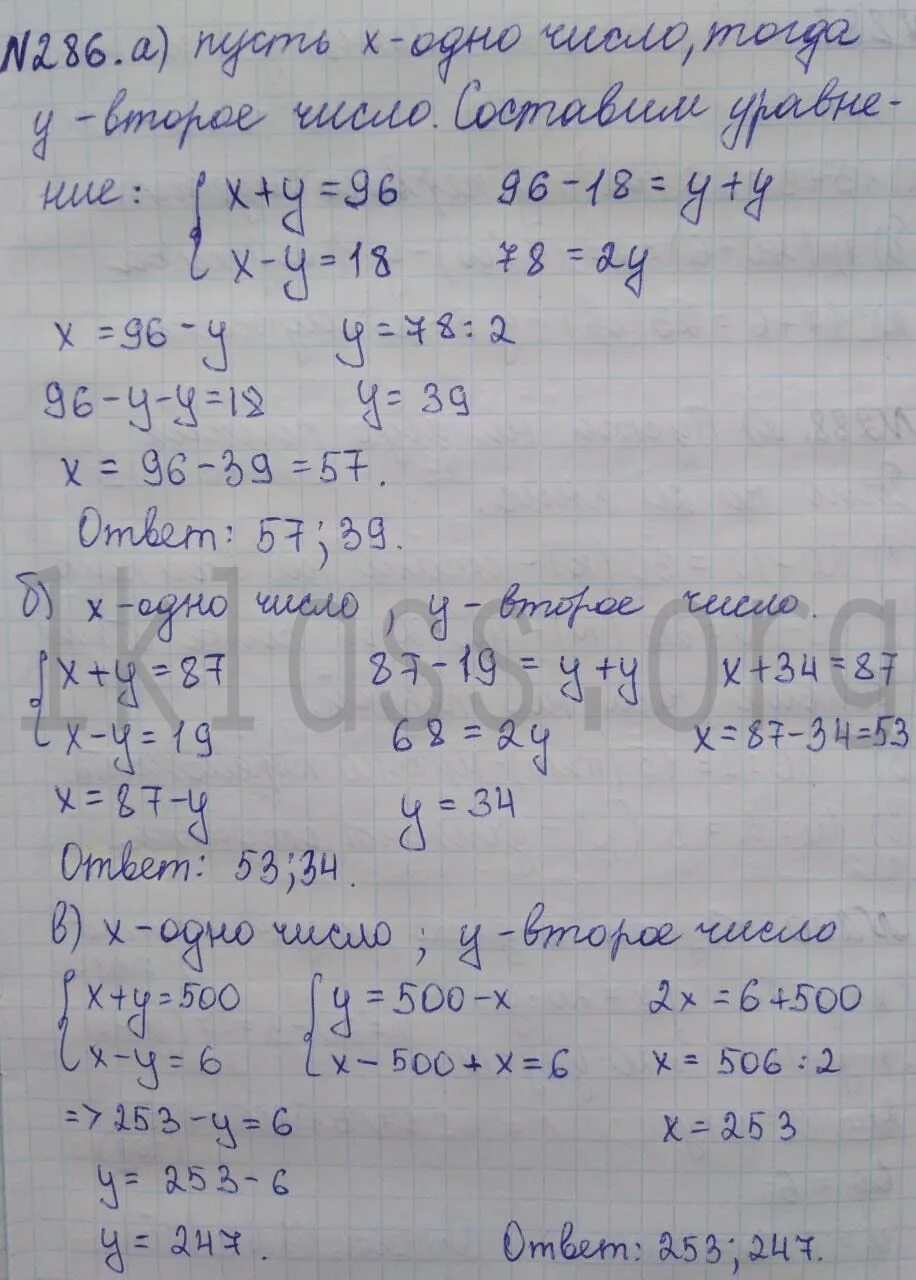 №286. а) пусть х-одно число, тогда
у-второе число. Составим уравне-
ние: { x+y=96   96-18=y+y
x-y=18   78=2y
x=96-y   y=78:2
96-y-y=18   y=39
x=96-39=57.
Ответ: 57; 39.
б) х-одно число, у-второе число.
{ x+y=87   87-19=y+y   x+34=87
x-y=19   68=2y   x=87-34=53
x=87-y   y=34
Ответ: 53; 34.
в) х-одно число; у-второе число
{ x+y=500   { y=500-x   2x=6+500
x-y=6   x-500+x=6   x=506:2
=> 253-y=6   x=253
y=253-6
y=247.   Ответ: 253; 247.
1klass.org